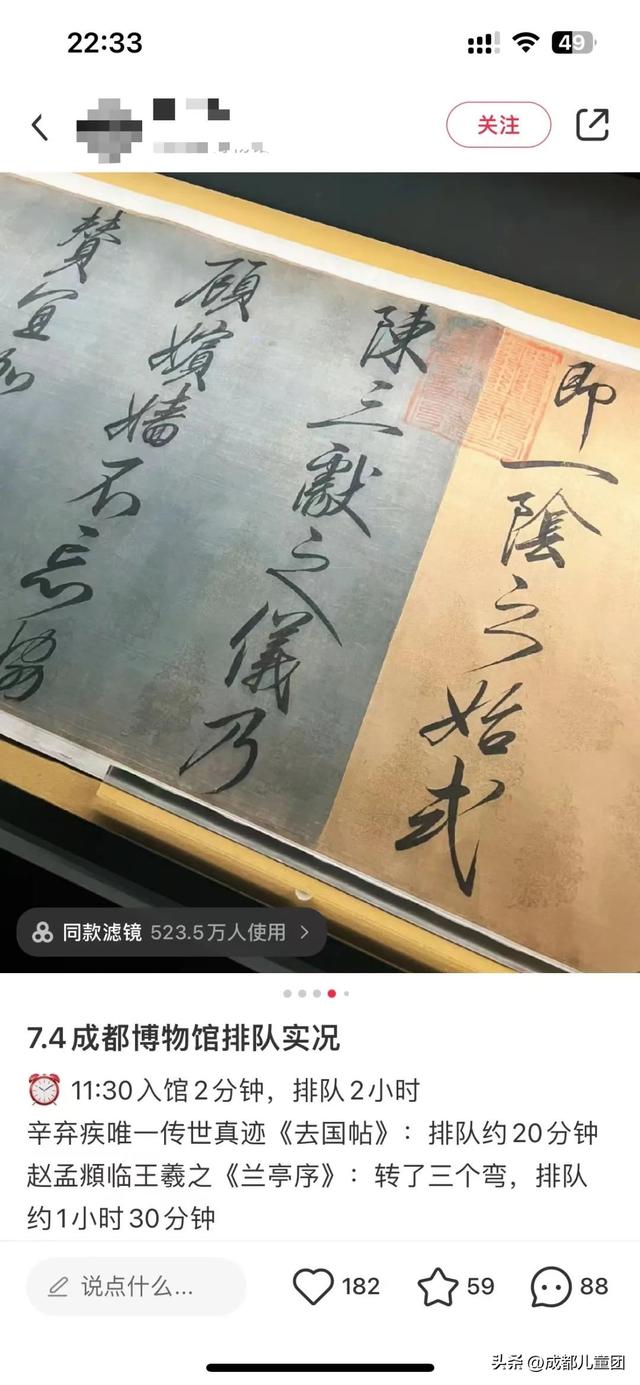 22:33
49
关注
即一陰之始式
陳三獻之儀乃
顾嬪嬙不忘
賛宜
同款滤镜 523.5万人使用
7.4成都博物馆排队实况
⏰ 11:30入馆2分钟，排队2小时
辛弃疾唯一传世真迹《去国帖》：排队约20分钟
赵孟頫临王羲之《兰亭序》：转了三个弯，排队
约1小时30分钟
说点什么...
182
59
88
头条 @成都儿童团